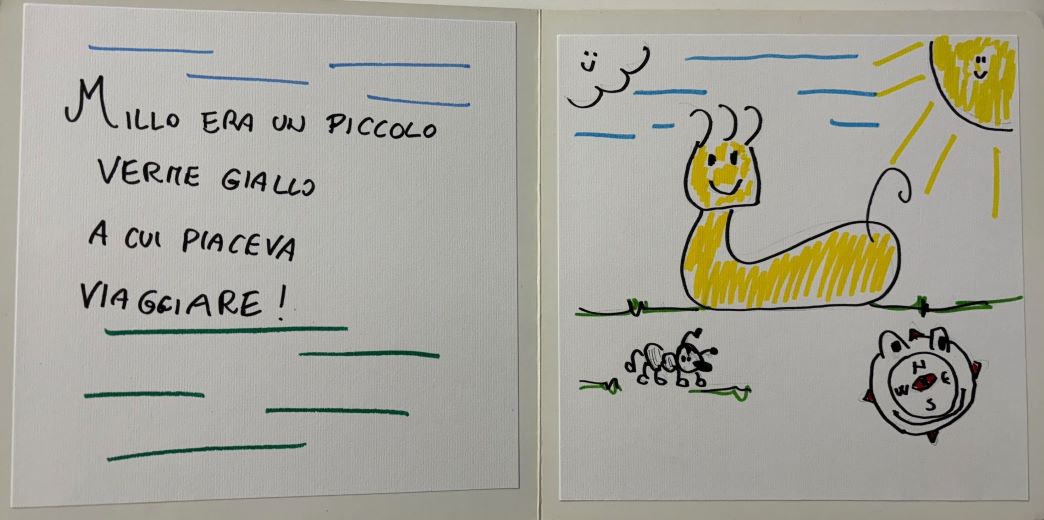 MILLO ERA UN PICCOLO
VERME GIALLO
A CUI PIACEVA
VIAGGIARE!
N
W E
S